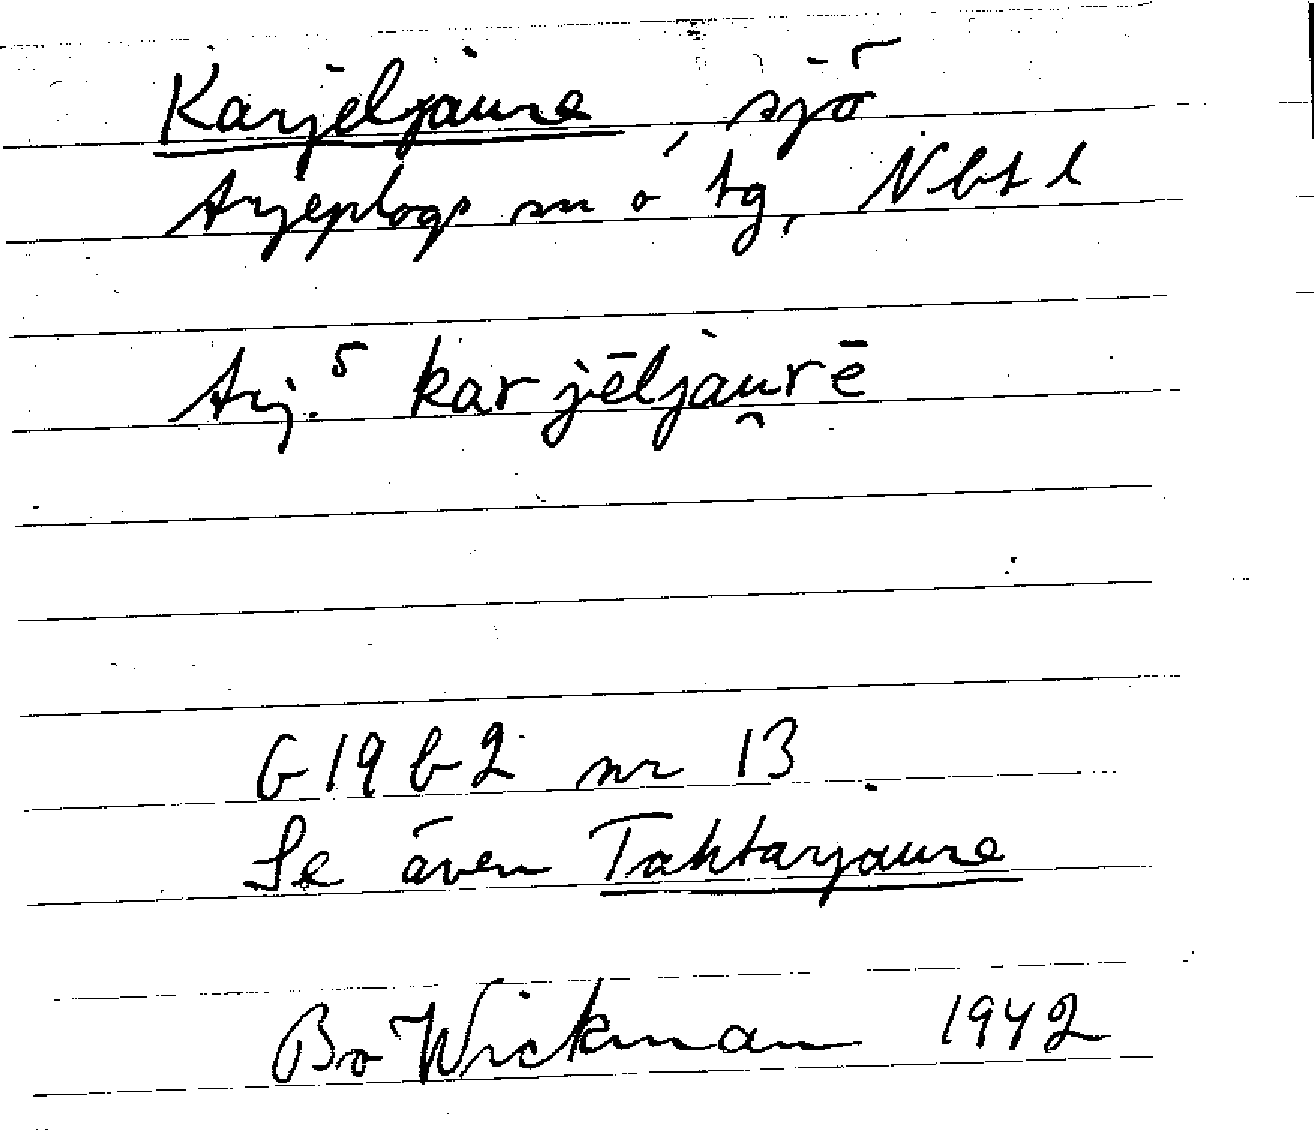 Karjeljaure, sjö
Arjeplogs sn o tg, Nbt l
Arj.⁵ karjēljau̯rē
G 19 b 2 nr 13
Se även Taktarjaure
Bo Wickman 1942